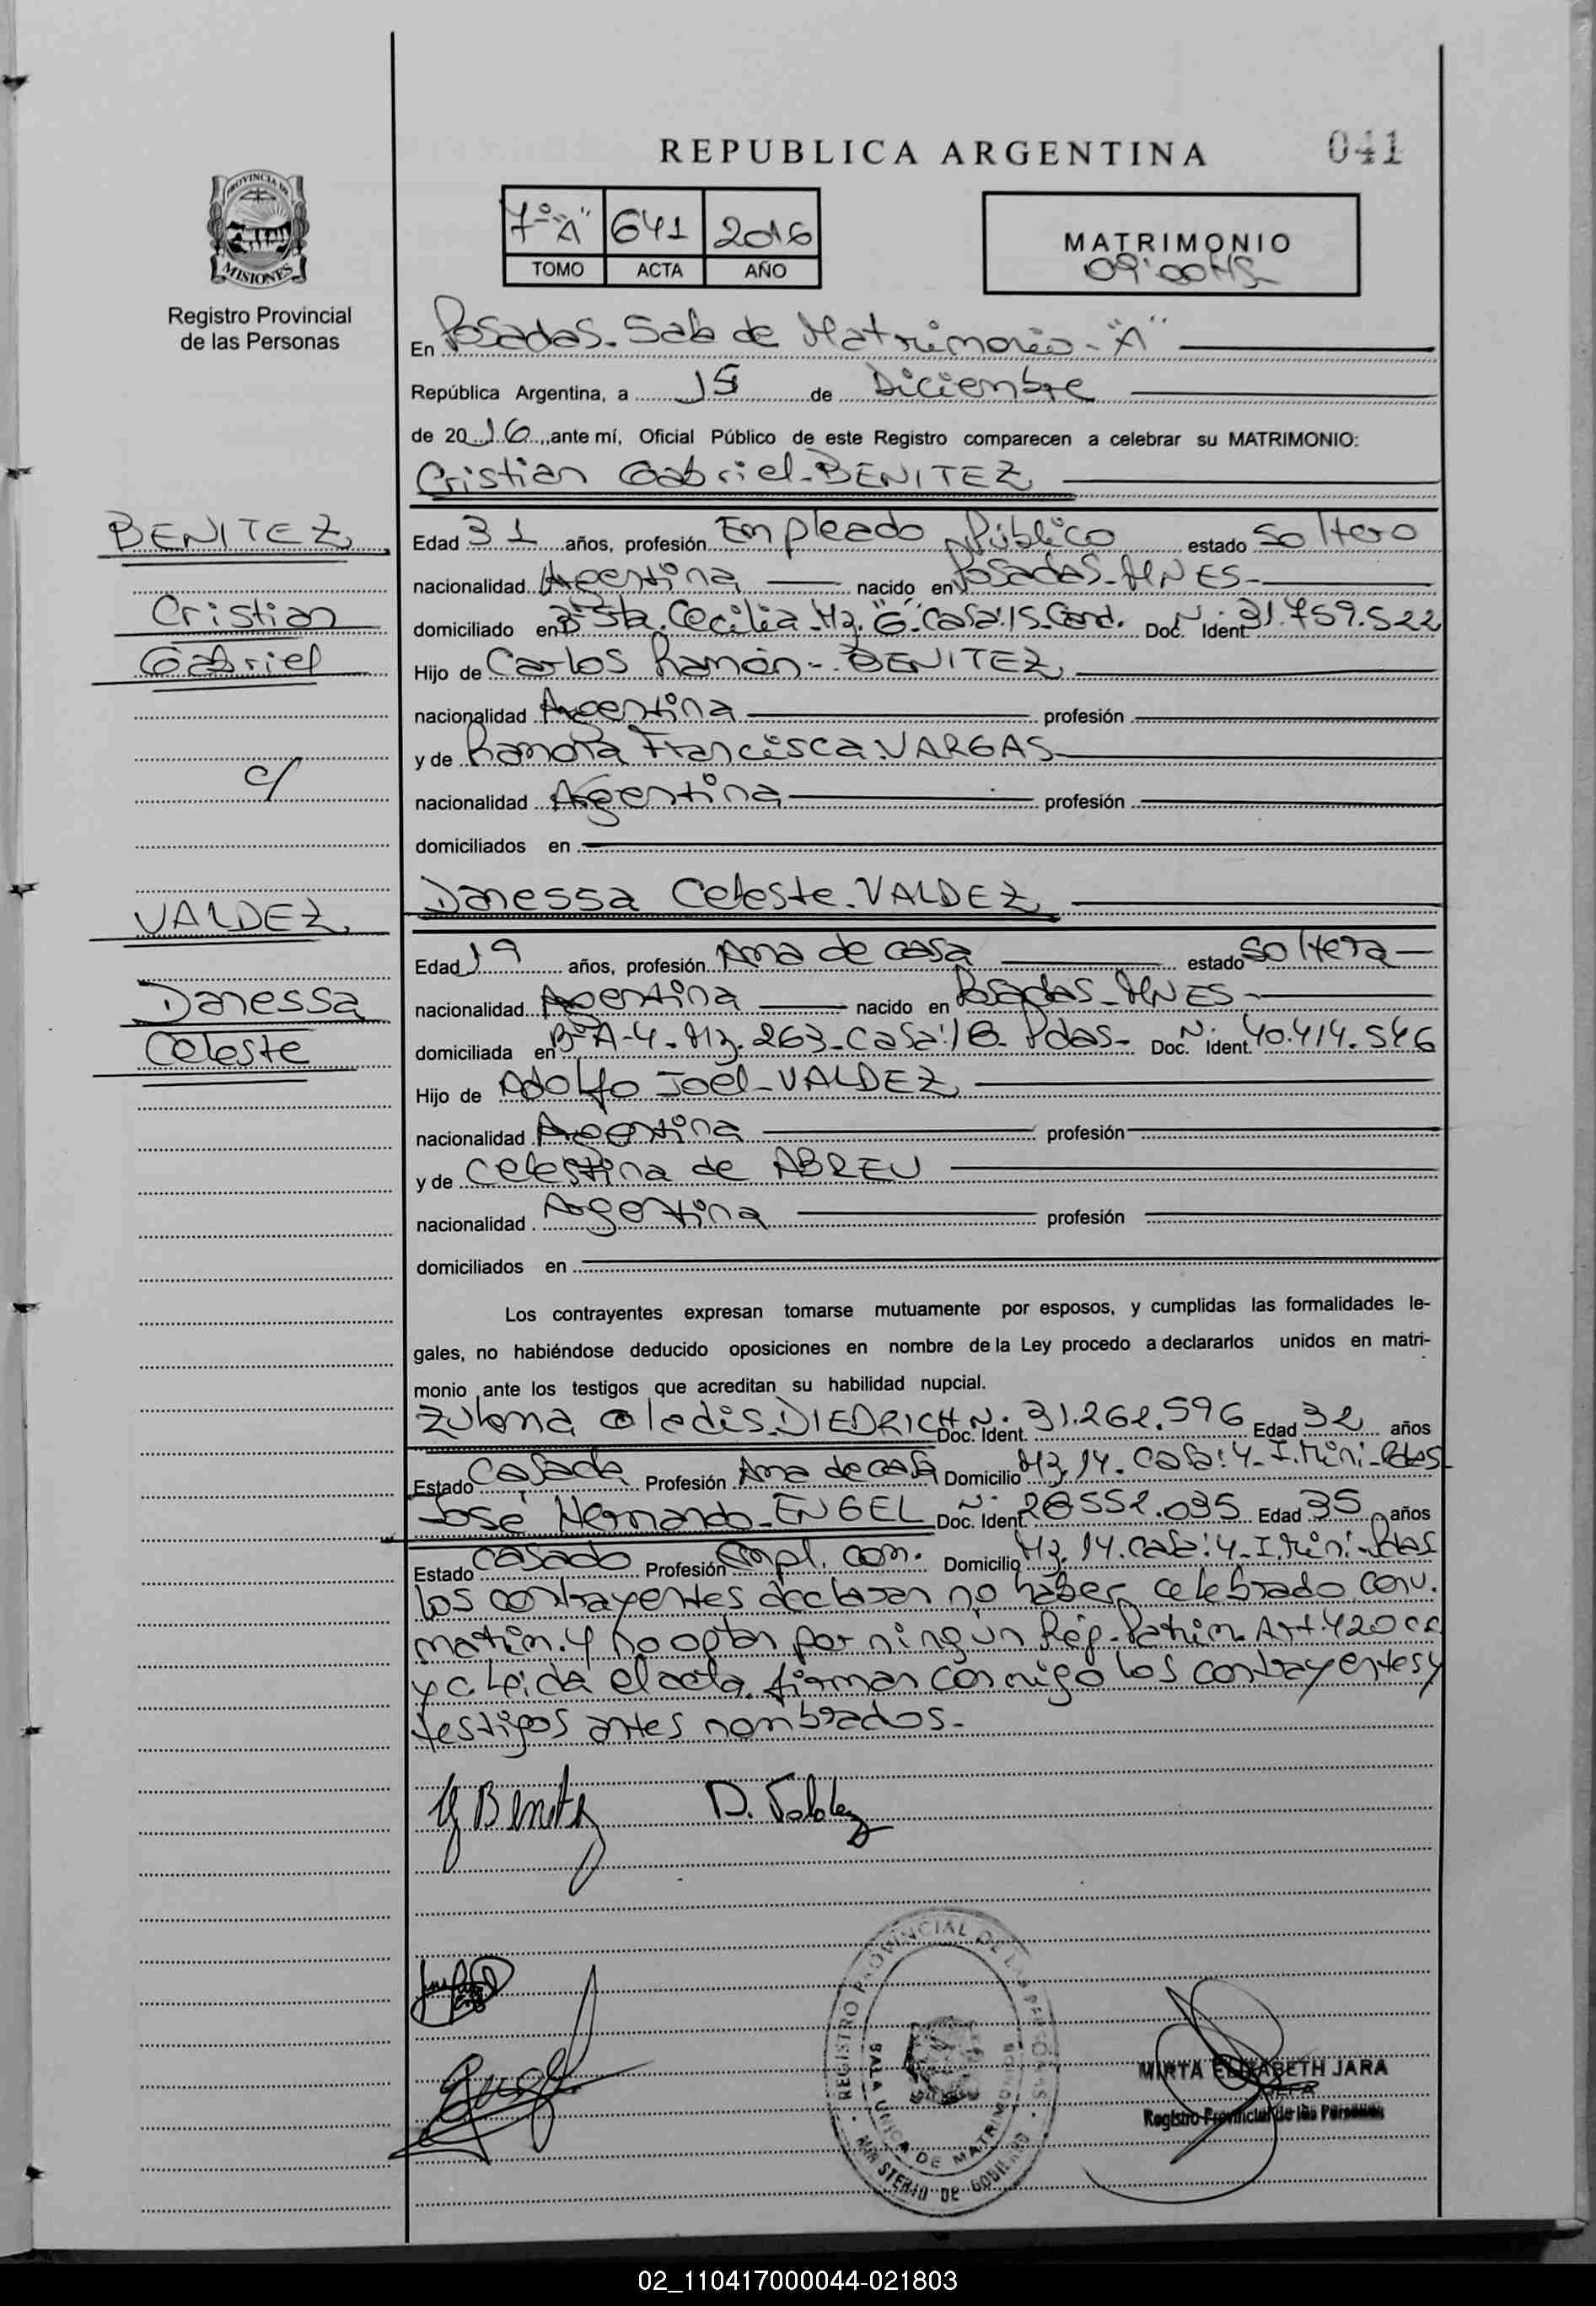 REPUBLICA ARGENTINA
041
PROVINCIA DE
MISIONES
Registro Provincial
de las Personas
7º "A" 641 2016
TOMO ACTA AÑO
MATRIMONIO
09:00 HS
En Posadas - Sala de Matrimonio - "A"
República Argentina, a 15 de Diciembre
de 2016, ante mí, Oficial Público de este Registro comparecen a celebrar su MATRIMONIO:
Cristian Gabriel - BENITEZ
BENITEZ
Cristian
Gabriel
c/
VALDEZ
Danessa
Celeste
Edad 31 años, profesión Empleado Público estado soltero
nacionalidad Argentina nacido en Posadas - MNES -
domiciliado en Bº Sta. Cecilia - Mz. "G" Casa: 15 - Cand. Doc. Ident. Nº 31.759.522
Hijo de Carlos Ramón - BENITEZ
nacionalidad Argentina profesión
y de Ramona Francisca VARGAS
nacionalidad Argentina profesión
domiciliados en
Danessa Celeste. VALDEZ
Edad 19 años, profesión Ama de casa estado soltera
nacionalidad Argentina nacido en Posadas - MNES -
domiciliada en Bº A-4 - Mz. 263 - Casa: 18 - Pdas - Doc. Ident. Nº 40.414.546
Hijo de Adolfo Joel - VALDEZ
nacionalidad Argentina profesión
y de Celestina de ABREU
nacionalidad Argentina profesión
domiciliados en
Los contrayentes expresan tomarse mutuamente por esposos, y cumplidas las formalidades le-
gales, no habiéndose deducido oposiciones en nombre de la Ley procedo a declararlos unidos en matri-
monio ante los testigos que acreditan su habilidad nupcial.
Zulema Gladis. DIEDRICH Doc. Ident. Nº 31.262.596 Edad 32 años
Estado Casada Profesión Ama de casa Domicilio Mz. 14. Casa: 4 - I. Mini - Pdas
José Hernando - ENGEL Doc. Ident. Nº 28.552.035 Edad 35 años
Estado Casado Profesión Empl. com. Domicilio Mz. 14. Casa: 4 - I. Mini - Pdas
los contrayentes declaran no haber celebrado conv.
matrim. y no optan por ningun Rég. Patrim. Art. 420 cc
y c. Leída el acta firman conmigo los contrayentes y
testigos antes nombrados.-
Benitez D. Valdez
Engel
REGISTRO PROVINCIAL DE LAS PERSONAS
SALA UNICA DE MATRIMONIOS
MINISTERIO DE GOBIERNO
MIRTA ELIZABETH JARA
JEFA
Registro Provincial de las Personas
02_110417000044-021803